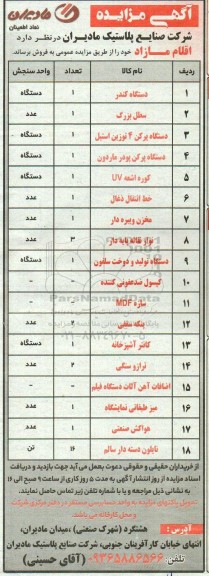 آگهی مزایده
مادیران
نماد اطمینان
شرکت صنایع پلاستیک مادیران در نظر دارد
اقلام مازاد خود را از طریق مزایده عمومی به فروش برساند.
ردیف نام کالا تعداد واحد سنجش
۱ دستگاه کندر ۱ دستگاه
۲ سطل بزرگ ۱ عدد
۳ دستگاه پرکن ۴ توزین استیل ۱ دستگاه
۴ دستگاه پرکن پودر ماردون ۱ دستگاه
۵ کوره اشعه UV ۱ دستگاه
۶ خط انتقال ذغال ۱ عدد
۷ مخزن ویبره دار ۱ عدد
۸ نوار نقاله پایه دار ۳ عدد
۹ دستگاه تولید و دوخت سلفون ۱ دستگاه
۱۰ کپسول ضدعفونی کننده - -
۱۱ سازه MDF - -
۱۲ پنکه سقفی ۱ عدد
۱۳ کانتر آشپزخانه ۱ دستگاه
۱۴ ترازو سنگی ۲ عدد
۱۵ اضافات آهن آلات دستگاه فیلم - -
۱۶ میز طبقاتی نمایشگاه ۱ عدد
۱۷ هواکش صنعتی ۱ عدد
۱۸ نایلون دسته دار سالم ۱۶ تن
از خریداران حقیقی و حقوقی دعوت بعمل می آید جهت بازدید و دریافت
اسناد مزایده از روز انتشار آگهی به مدت ۵ روز کاری از ساعت ۹ صبح الی ۱۶
به نشانی ذیل مراجعه و یا با شماره تلفن زیر تماس حاصل نمایند.
آدرس: هشتگرد (شهرک صنعتی)، میدان مادیران،
انتهای خیابان کارآفرینان جنوبی، شرکت صنایع پلاستیک مادیران
تلفن ۰۹۳۶۵۸۸۶۵۶۶ (آقای حسینی)